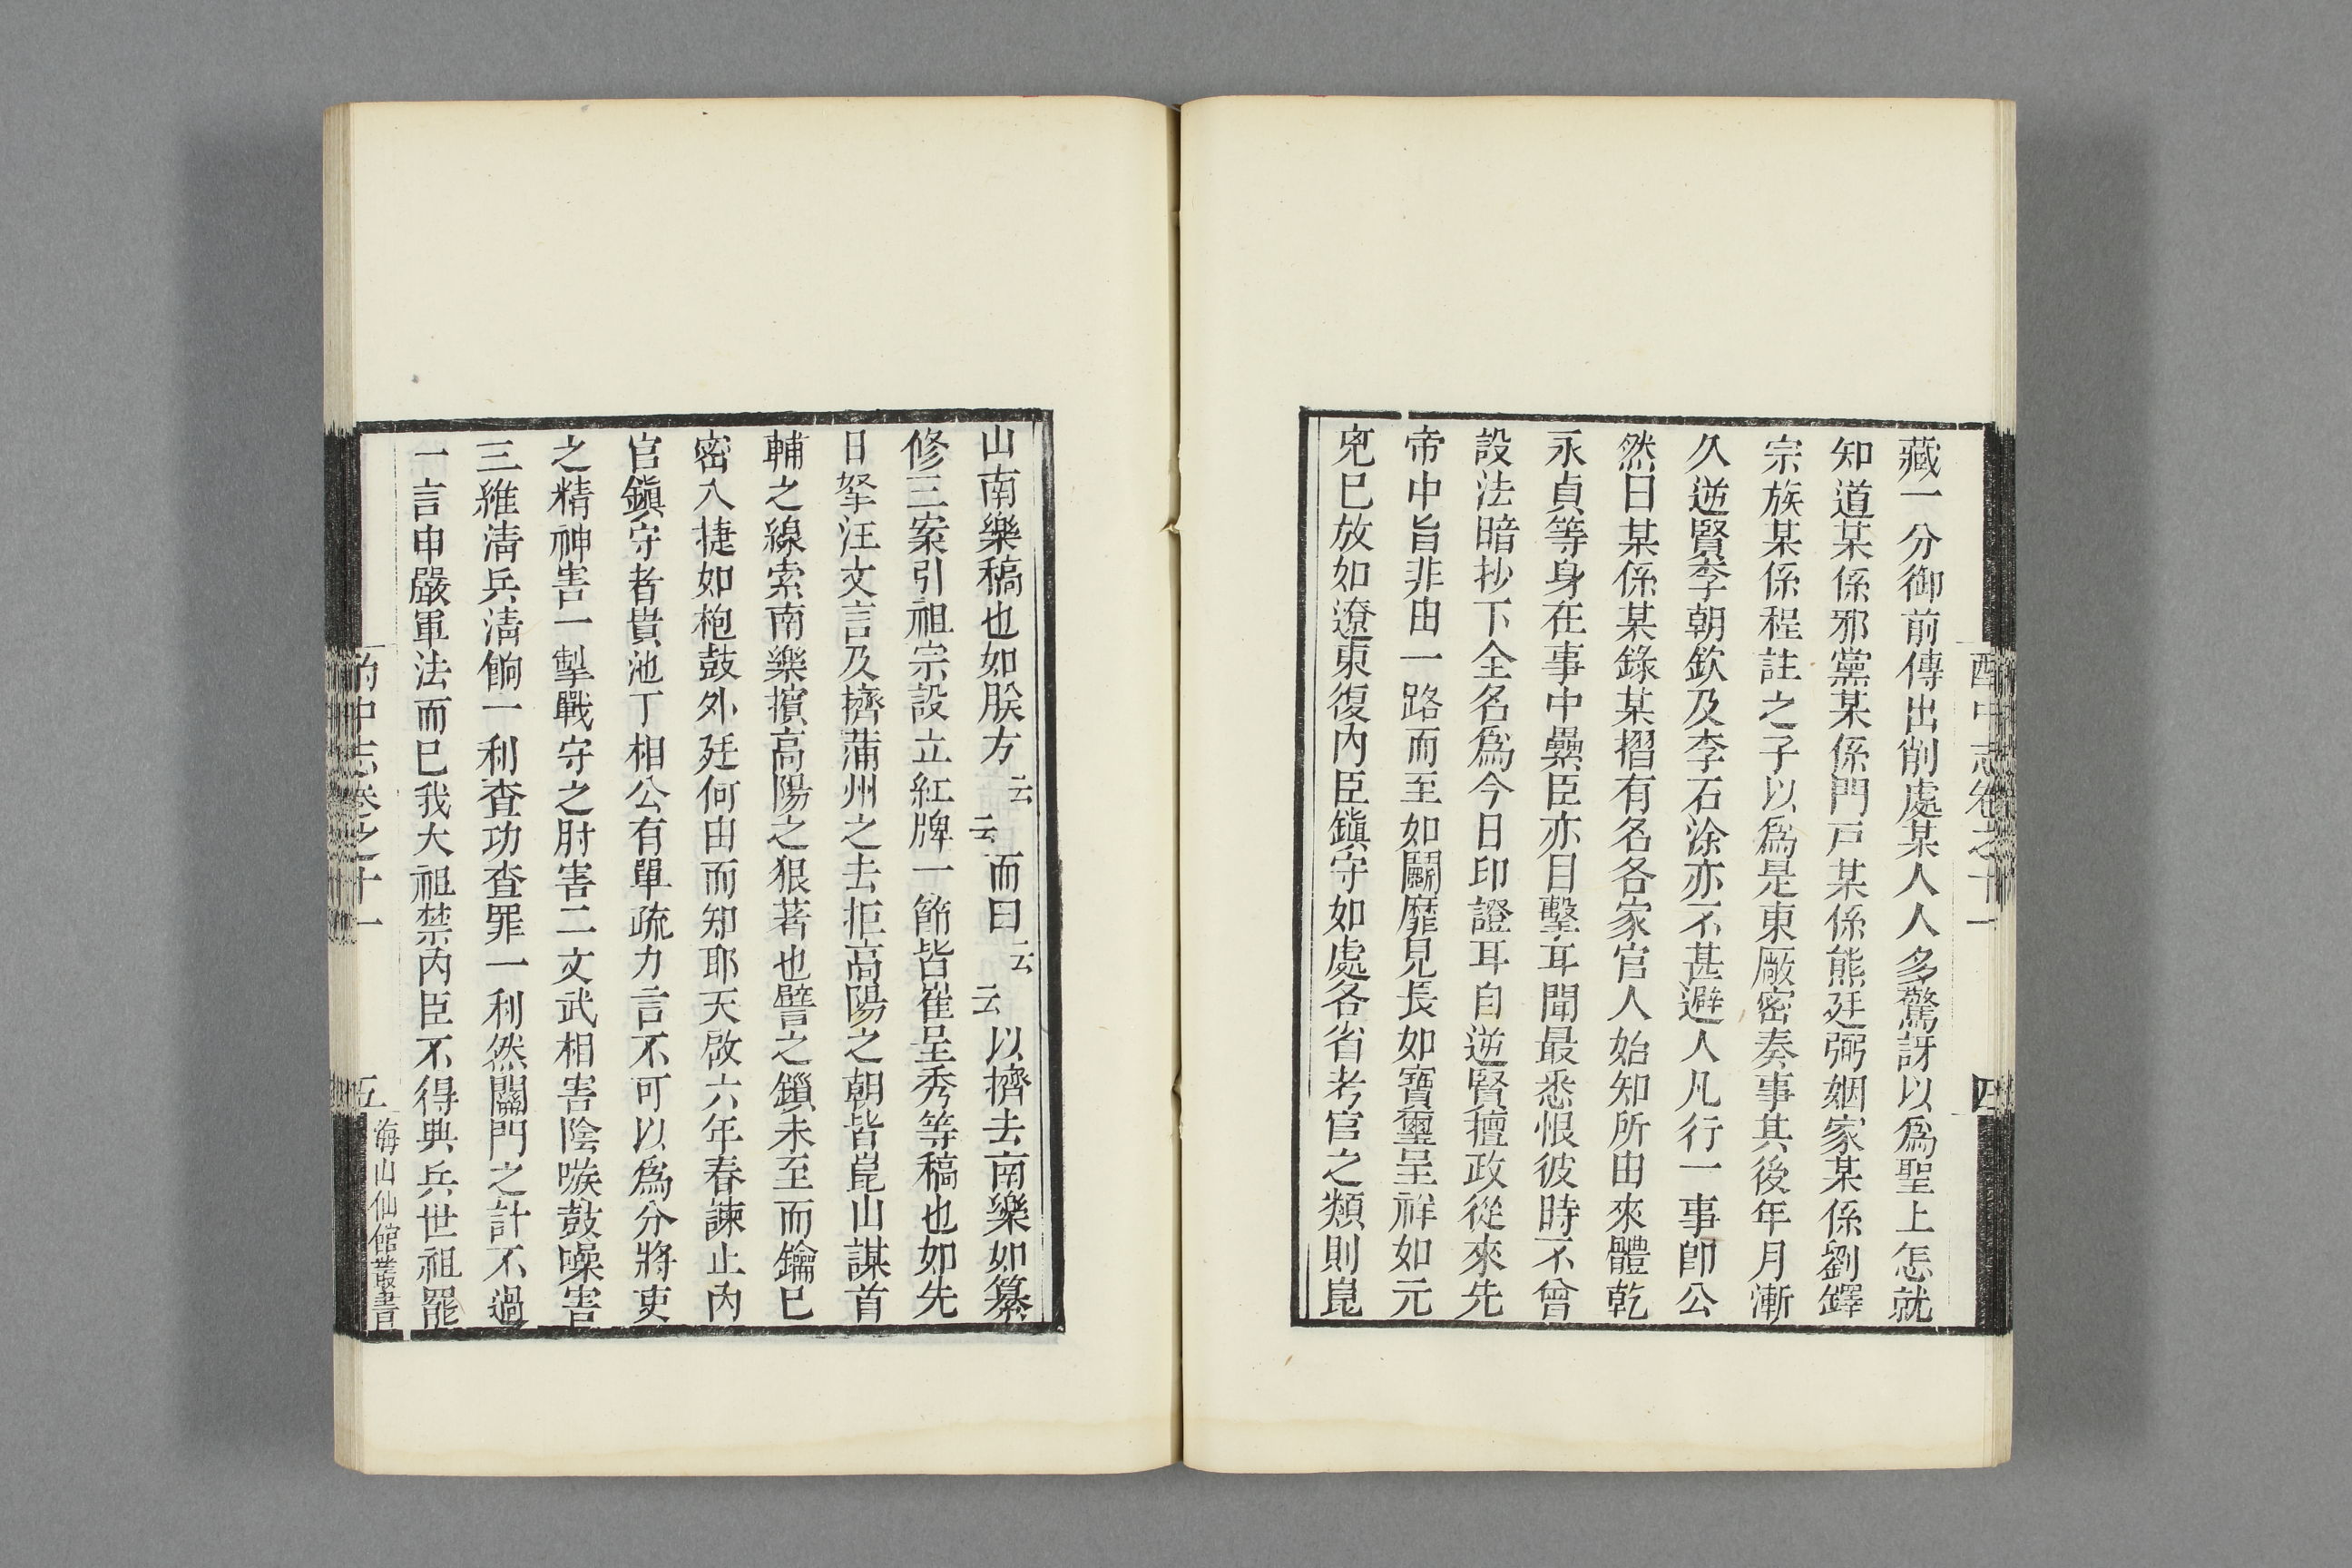 酌中志卷之十一
四
藏一分御前傳出削處某人人多驚訝以為聖上怎就
知道某係邪黨某係門戸某係熊廷弼姻家某係劉鐸
宗族某係程註之子以為是東厰密奏事其後年月漸
久逆賢李朝欽及李石涂亦不甚避人凡行一事卽公
然曰某係某錄某摺有名各家官人始知所由來體乾
永貞等身在事中纍臣亦目擊耳聞最悉恨彼時不曾
設法暗抄下全名為今日印證耳自逆賢擅政從來先
帝中旨非由一路而至如鬭靡見長如寶璽呈祥如元
兇巳放如遼東復內臣鎭守如處各省考官之類則崑
山南樂稿也如朕方云云而曰云云以擠去南樂如纂
修三案引祖宗設立紅牌一節皆崔呈秀等稿也如先
日拏汪文言及擠蒲州之去拒高陽之朝皆崑山謀首
輔之線索南樂擯高陽之狠著也譬之鎖未至而鑰巳
密入捷如枹鼓外廷何由而知耶天啟六年春諫止內
官鎭守者貴池丁相公有單疏力言不可以為分將吏
之精神害一掣戰守之肘害二文武相害陰嗾鼓譟害
三維淸兵淸餉一利查功查罪一利然關門之計不過
一言申嚴軍法而巳我太祖禁內臣不得典兵世祖罷
酌中志卷之十一
五
海山仙館叢書